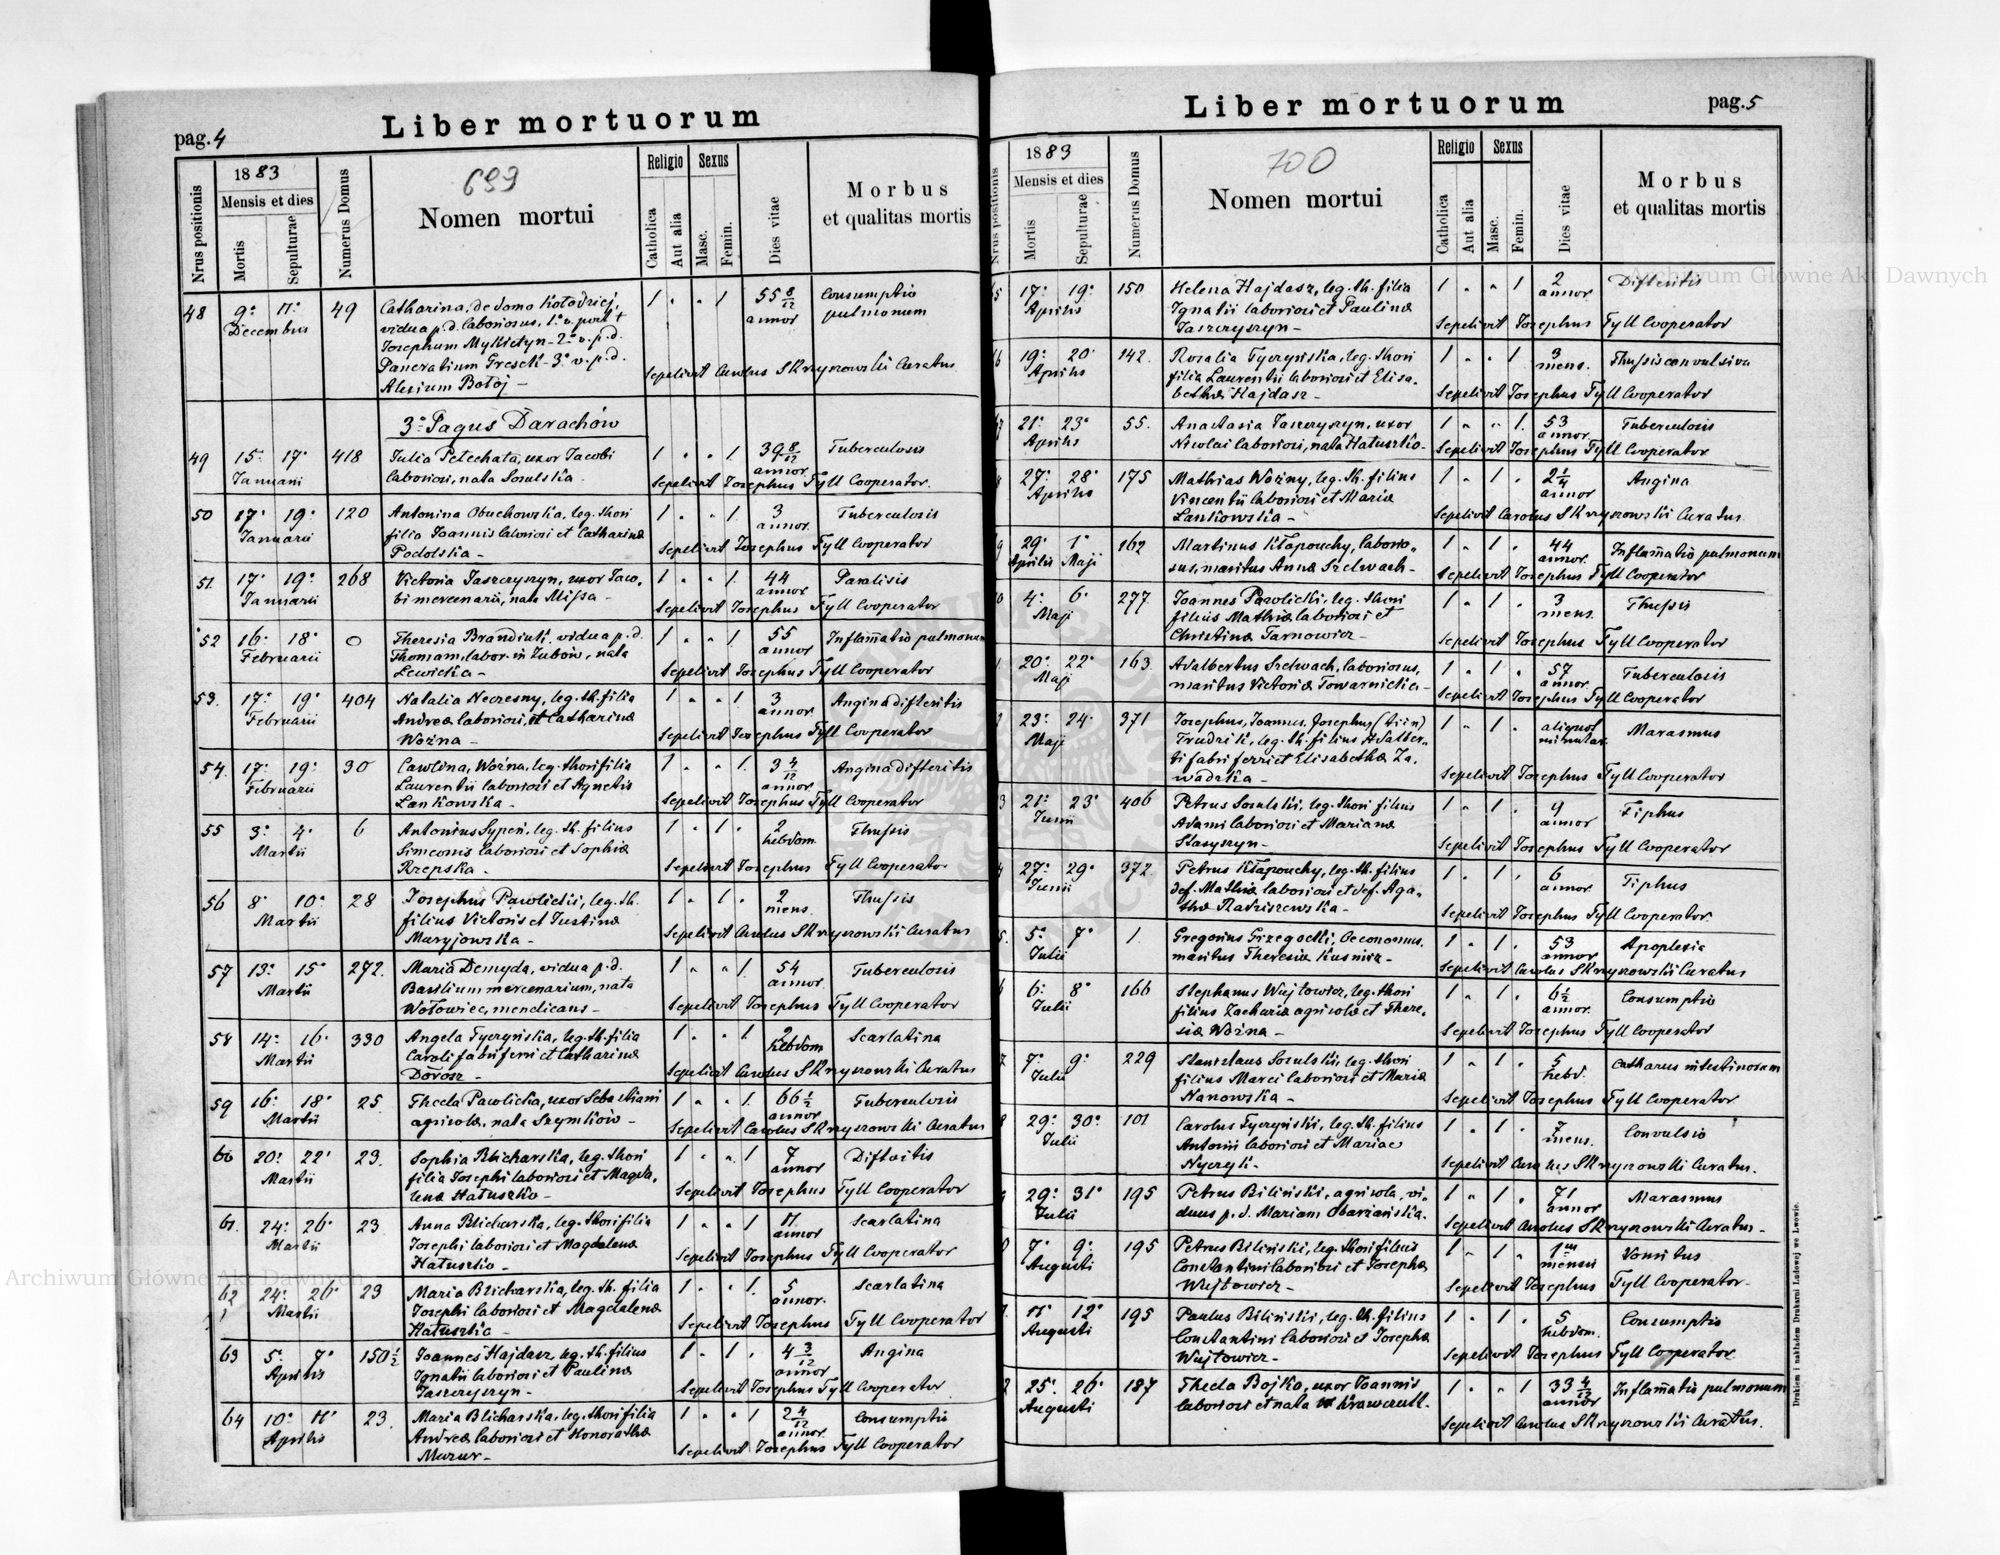 Liber mortuorum
pag. 4
Nrus positionis
1883
Mensis et dies
Mortis
Sepulturae
Numerus Domus
699
Nomen mortui
Religio
Catholica
Aut alia
Sexus
Masc.
Femin.
Dies vitae
Morbus
et qualitas mortis
48 9. 11. 49 Catharina, de domo Kołodziej, 1 " " 1 55 8/12 Consumptio
Decembris vidua p.d. laboriosus, 1o v. post annor pulmonum
Josephum Mykietyn - 2o v. p.d.
Pancratium Gresch - 3o v. p.d. Sepelivit Carolus Skrzyszowski Curatus
Alexium Botoj -
3o Pagus Darachów
49 15. 17. 418 Julia Pełechata, uxor Jacobi 1 " " 1 39 8/12 Tuberculosis
Januarii laboriosi, nata Sosulska annor
Sepelivit Josephus Tyll Cooperator.
50 17. 19. 120 Antonina Obuchowska, leg. thori 1 " " 1 3 Tuberculosis
Januarii filia Joannis laboriosi et Catharinæ annor
Podolska - Sepelivit Josephus Tyll Cooperator
51. 17. 19. 268 Victoria Jaszczyszyn, uxor Jaco- 1 " " 1 44 Paralisis
Januarii bi mercenarii, nata Missa - annor
Sepelivit Josephus Tyll Cooperator
52 16. 18. 0 Theresia Brandiuk, vidua p.d. 1 " " 1 55 Inflam̄atio pulmonum
Februarii Thomam, labor. in Zubów, nata annor
Lewicka - Sepelivit Josephus Tyll Cooperator
53. 17. 19. 404 Natalia Neczesny, leg. th. filia 1 " " 1 3 Angina difteritis
Februarii Andreæ laboriosi, et Catharinæ annor
Woźna - Sepelivit Josephus Tyll Cooperator
54. 17. 19. 30 Carolina, Woźna, leg. thori filia 1 " " 1 3 4/12 Angina difteritis
Februarii Laurentii laboriosi et Agnetis annor
Lankowska - Sepelivit Josephus Tyll Cooperator
55 3. 4. 6 Antonius Sypeń, leg. th. filius 1 " 1 " 2 Thussis
Martii Simeonis laboriosi et Sophiæ hebdom.
Rzepska - Sepelivit Josephus Tyll Cooperator
56 8. 10. 28 Josephus Pawlicki, leg. th. 1 " 1 " 2 Thussis
Martii filius Victoris et Justinæ mens.
Maryjowska - Sepelivit Carolus Skrzyszowski Curatus
57 13. 15. 272. Maria Demyda, vidua p.d. 1 " " 1 54 Tuberculosis
Martii Basilium mercenarium, nata annor
Wołowiec, mendicans - Sepelivit Josephus Tyll Cooperator
58 14. 16. 330 Angela Tyczyńska, leg. th. filia 1 " " 1 2 Scarlatina
Martii Caroli fabri ferri et Catharinæ hebdom
Dorosz - Sepelivit Carolus Skrzyszowski Curatus
59 16. 18. 25. Thecla Pawlicka, uxor Sebastiani 1 " " 1 66 1/2 Tuberculosis
Martii agricolæ, nata Szymków - annor
Sepelivit Carolus Skrzyszowski Curatus
60 20. 22. 23. Sophia Blicharska, leg. thori 1 " " 1 7 Difteitis
Martii filia Josephi laboriosi et Magda- annor
lenæ Hatuszko - Sepelivit Josephus Tyll Cooperator
61. 24. 26. 23 Anna Blicharska, leg. thori filia 1 " " 1 11. Scarlatina
Martii Josephi laboriosi et Magdalenæ annor
Hatuszko - Sepelivit Josephus Tyll Cooperator
62 24. 26. 23 Maria Blicharska, leg. th. filia 1 " " 1 5 Scarlatina
Martii Josephi laboriosi et Magdalenæ annor.
Hatuszko - Sepelivit Josephus Tyll Cooperator
63 5. 7. 150 1/2 Joannes Hajdasz, leg. th. filius 1 " 1 " 4 3/12 Angina
Aprilis Ignatii laboriosi et Paulinæ annor
Jaszczyszyn - Sepelivit Josephus Tyll Cooperator
64 10. 11. 23. Maria Blicharska, leg. thori filia 1 " " 1 2 4/12 Consumptio
Aprilis Andreæ laboriosi et Honorathæ annor.
Mazur - Sepelivit Josephus Tyll Cooperator
Liber mortuorum
pag. 5
Nrus positionis
1883
Mensis et dies
Mortis
Sepulturae
Numerus Domus
700
Nomen mortui
Religio
Catholica
Aut alia
Sexus
Masc.
Femin.
Dies vitae
Morbus
et qualitas mortis
5 17. 19. 150 Helena Hajdasz, leg. th. filia 1 " " 1 2 Difteritis
Aprilis Ignatii laboriosi et Paulinæ annor
Jaszczyszyn - Sepelivit Josephus Tyll Cooperator
6 19. 20. 142. Rosalia Tyczyńska, leg. thori 1 " " 1 3 Thussis convulsiva
Aprilis filia Laurentii laboriosi et Elisa- mens.
bethæ Hajdasz - Sepelivit Josephus Tyll Cooperator
7 21. 23. 55. Anastasia Jaszczyszyn, uxor 1 " " 1 53 Tuberculosis
Aprilis Nicolai laboriosi, nata Hatuszko - annor
Sepelivit Josephus Tyll Cooperator
27. 28. 175 Mathias Woźny, leg. th. filius 1 " 1 " 2 1/4 Angina
Aprilis Vincentii laboriosi et Mariæ annor
Lankowska - Sepelivit Carolus Skrzyszowski Curatus
9 29. 1. 162 Martinus Kłapouchy, laborio- 1 " 1 " 44 Inflam̄atio pulmonum
Aprilis Maji sus, maritus Annæ Szelwach - annor.
Sepelivit Josephus Tyll Cooperator
0 4. 6. 277. Joannes Pawlicki, leg. thori 1 " 1 " 3 Thussis
Maji filius Mathiæ laboriosi et mens.
Christinæ Tarnowicz - Sepelivit Josephus Tyll Cooperator
1 20. 22. 163 Adalbertus Szelwach, laboriosus, 1 " 1 " 57 Tuberculosis
Maji maritus Victoriæ Towarnicka - annor
Sepelivit Josephus Tyll Cooperator
23. 24. 371 Josephus, Joannes, Josephus (Triin) 1 " 1 " aliquot Marasmus
Maji Trudzik, leg. th. filius Adalber- minutar.
ti fabri ferri et Elisabethæ Za-
wadzka - Sepelivit Josephus Tyll Cooperator
3 21. 23. 406 Petrus Sosulski, leg. thori filius 1 " 1 " 9 Tiphus
Junii Adami laboriosi et Marianæ annor
Stasyszyn - Sepelivit Josephus Tyll Cooperator
4 27. 29. 372. Petrus Kłapouchy, leg. th. filius 1 " 1 " 6 Tiphus
Junii def. Mathiæ laboriosi et def. Aga- annor.
thæ Radziszewska - Sepelivit Josephus Tyll Cooperator
5. 5. 7. 1. Gregorius Grzegocki, Oeconomus, 1 " 1 " 53 Apoplexia
Julii maritus Theresiæ Kusnirz - annor
Sepelivit Carolus Skrzyszowski Curatus
6 6. 8. 166 Stephanus Wujtowicz, leg. thori 1 " 1 " 6 1/2 Consumptio
Julii filius Zachariæ agricolæ et There- annor.
siæ Woźna - Sepelivit Josephus Tyll Cooperator
7. 9. 229 Stanislaus Sosulski, leg. thori 1 " 1 " 5 Catharus intestinorum
Julii filius Marci laboriosi et Mariæ hebd.
Nanowska - Sepelivit Josephus Tyll Cooperator
8 29. 30. 101 Carolus Tyczyński, leg. th. filius 1 " 1 " 7 Convulsio
Julii Antonii laboriosi et Mariae mens.
Nyczyk - Sepelivit Carolus Skrzyszowski Curatus.
29. 31. 195 Petrus Biliński, agricola, vi- 1 " 1 " 71 Marasmus
Julii duus p.d. Mariam Obarzańska. annor
Sepelivit Carolus Skrzyszowski Curatus -
0 7. 9. 195 Petrus Biliński, leg. thori filius 1 " 1 " 1 Vomitus
Augusti Constantini laboriosi et Josephæ mensis
Wujtowicz - Sepelivit Josephus Tyll Cooperator -
11. 12. 195 Paulus Biliński, leg. th. filius 1 " 1 " 5 Consumptio
Augusti Constantini laboriosi et Josephæ hebdom.
Wujtowicz - Sepelivit Josephus Tyll Cooperator
2 25. 26. 187 Thecla Bojko, uxor Joannis 1 " " 1 33 4/12 Inflam̄atio pulmonum
Augusti laboriosi et nata Krawczuk. annor
Sepelivit Carolus Skrzyszowski Curatus.
Drukiem i nakładem Drukarni Ludowej we Lwowie.
Archiwum Główne Akt Dawnych
Archiwum Główne Akt Dawnych